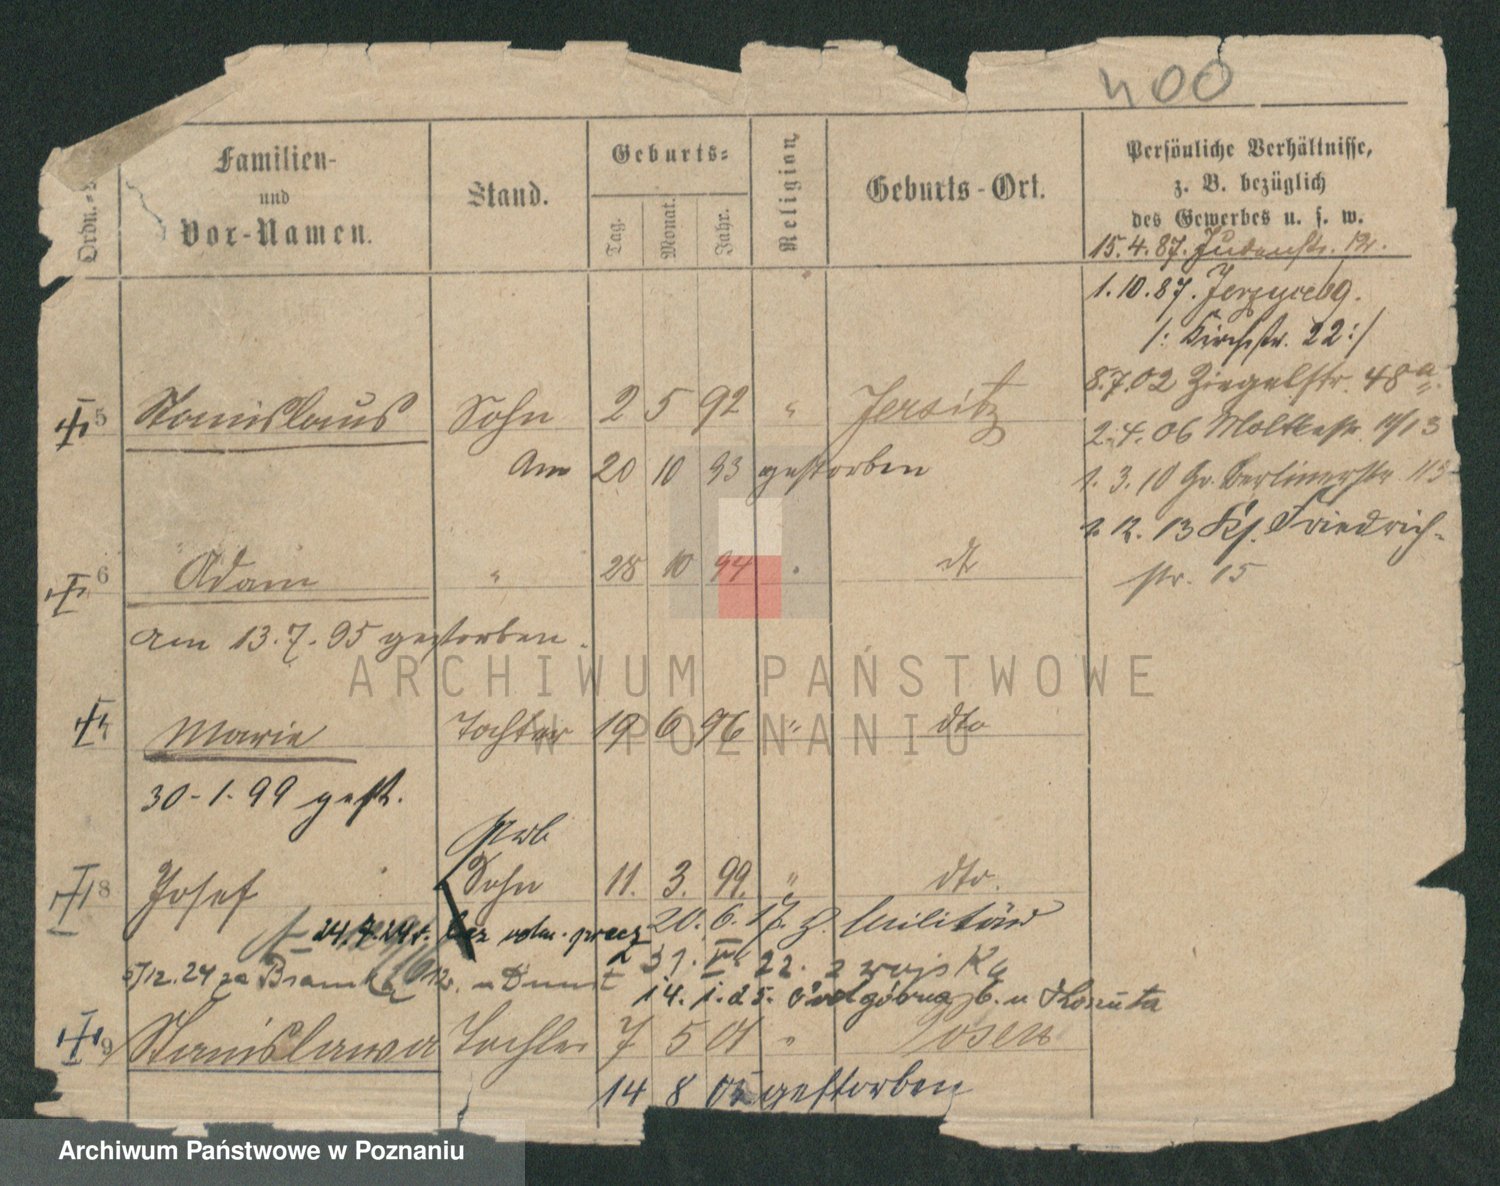 400
Ordn.=
Familien-
und
Vor-Namen.
Stand.
Geburts=
Tag.
Monat.
Jahr.
Religion.
Geburts-Ort.
Persönliche Verhältnisse,
z. B. bezüglich
des Gewerbes u. s. w.
15.4.87. Judenstr. 12.
1.10.87. Jerzyce 69.
/: Kirchstr. 22 :/
8.7.02 Ziegelstr. 48a
2.4.06 Moltkestr.
1.3.10 Gr. Berlinerstr. 115
1.12.13 Ks. Friedrich-
str. 15
5 Stanislaus Sohn 2 5 92 " Jersitz
Am 20 10 93 gestorben
6 Adam " 28 10 94 " dt
am 13.7.95 gestorben.
7 Marie Tochter 19 6 96 " dto
30-1-99 gest.
8 Josef Sohn 11. 3. 99. " dto.
20.6.17. z. Militär
24.4.24
31. 22. z wojska
12.24 za
14.1.25.
9 Stanislawa Tochter 7 5 01 " Posen
14 8 gestorben
ARCHIWUM PAŃSTWOWE
W POZNANIU
Archiwum Państwowe w Poznaniu